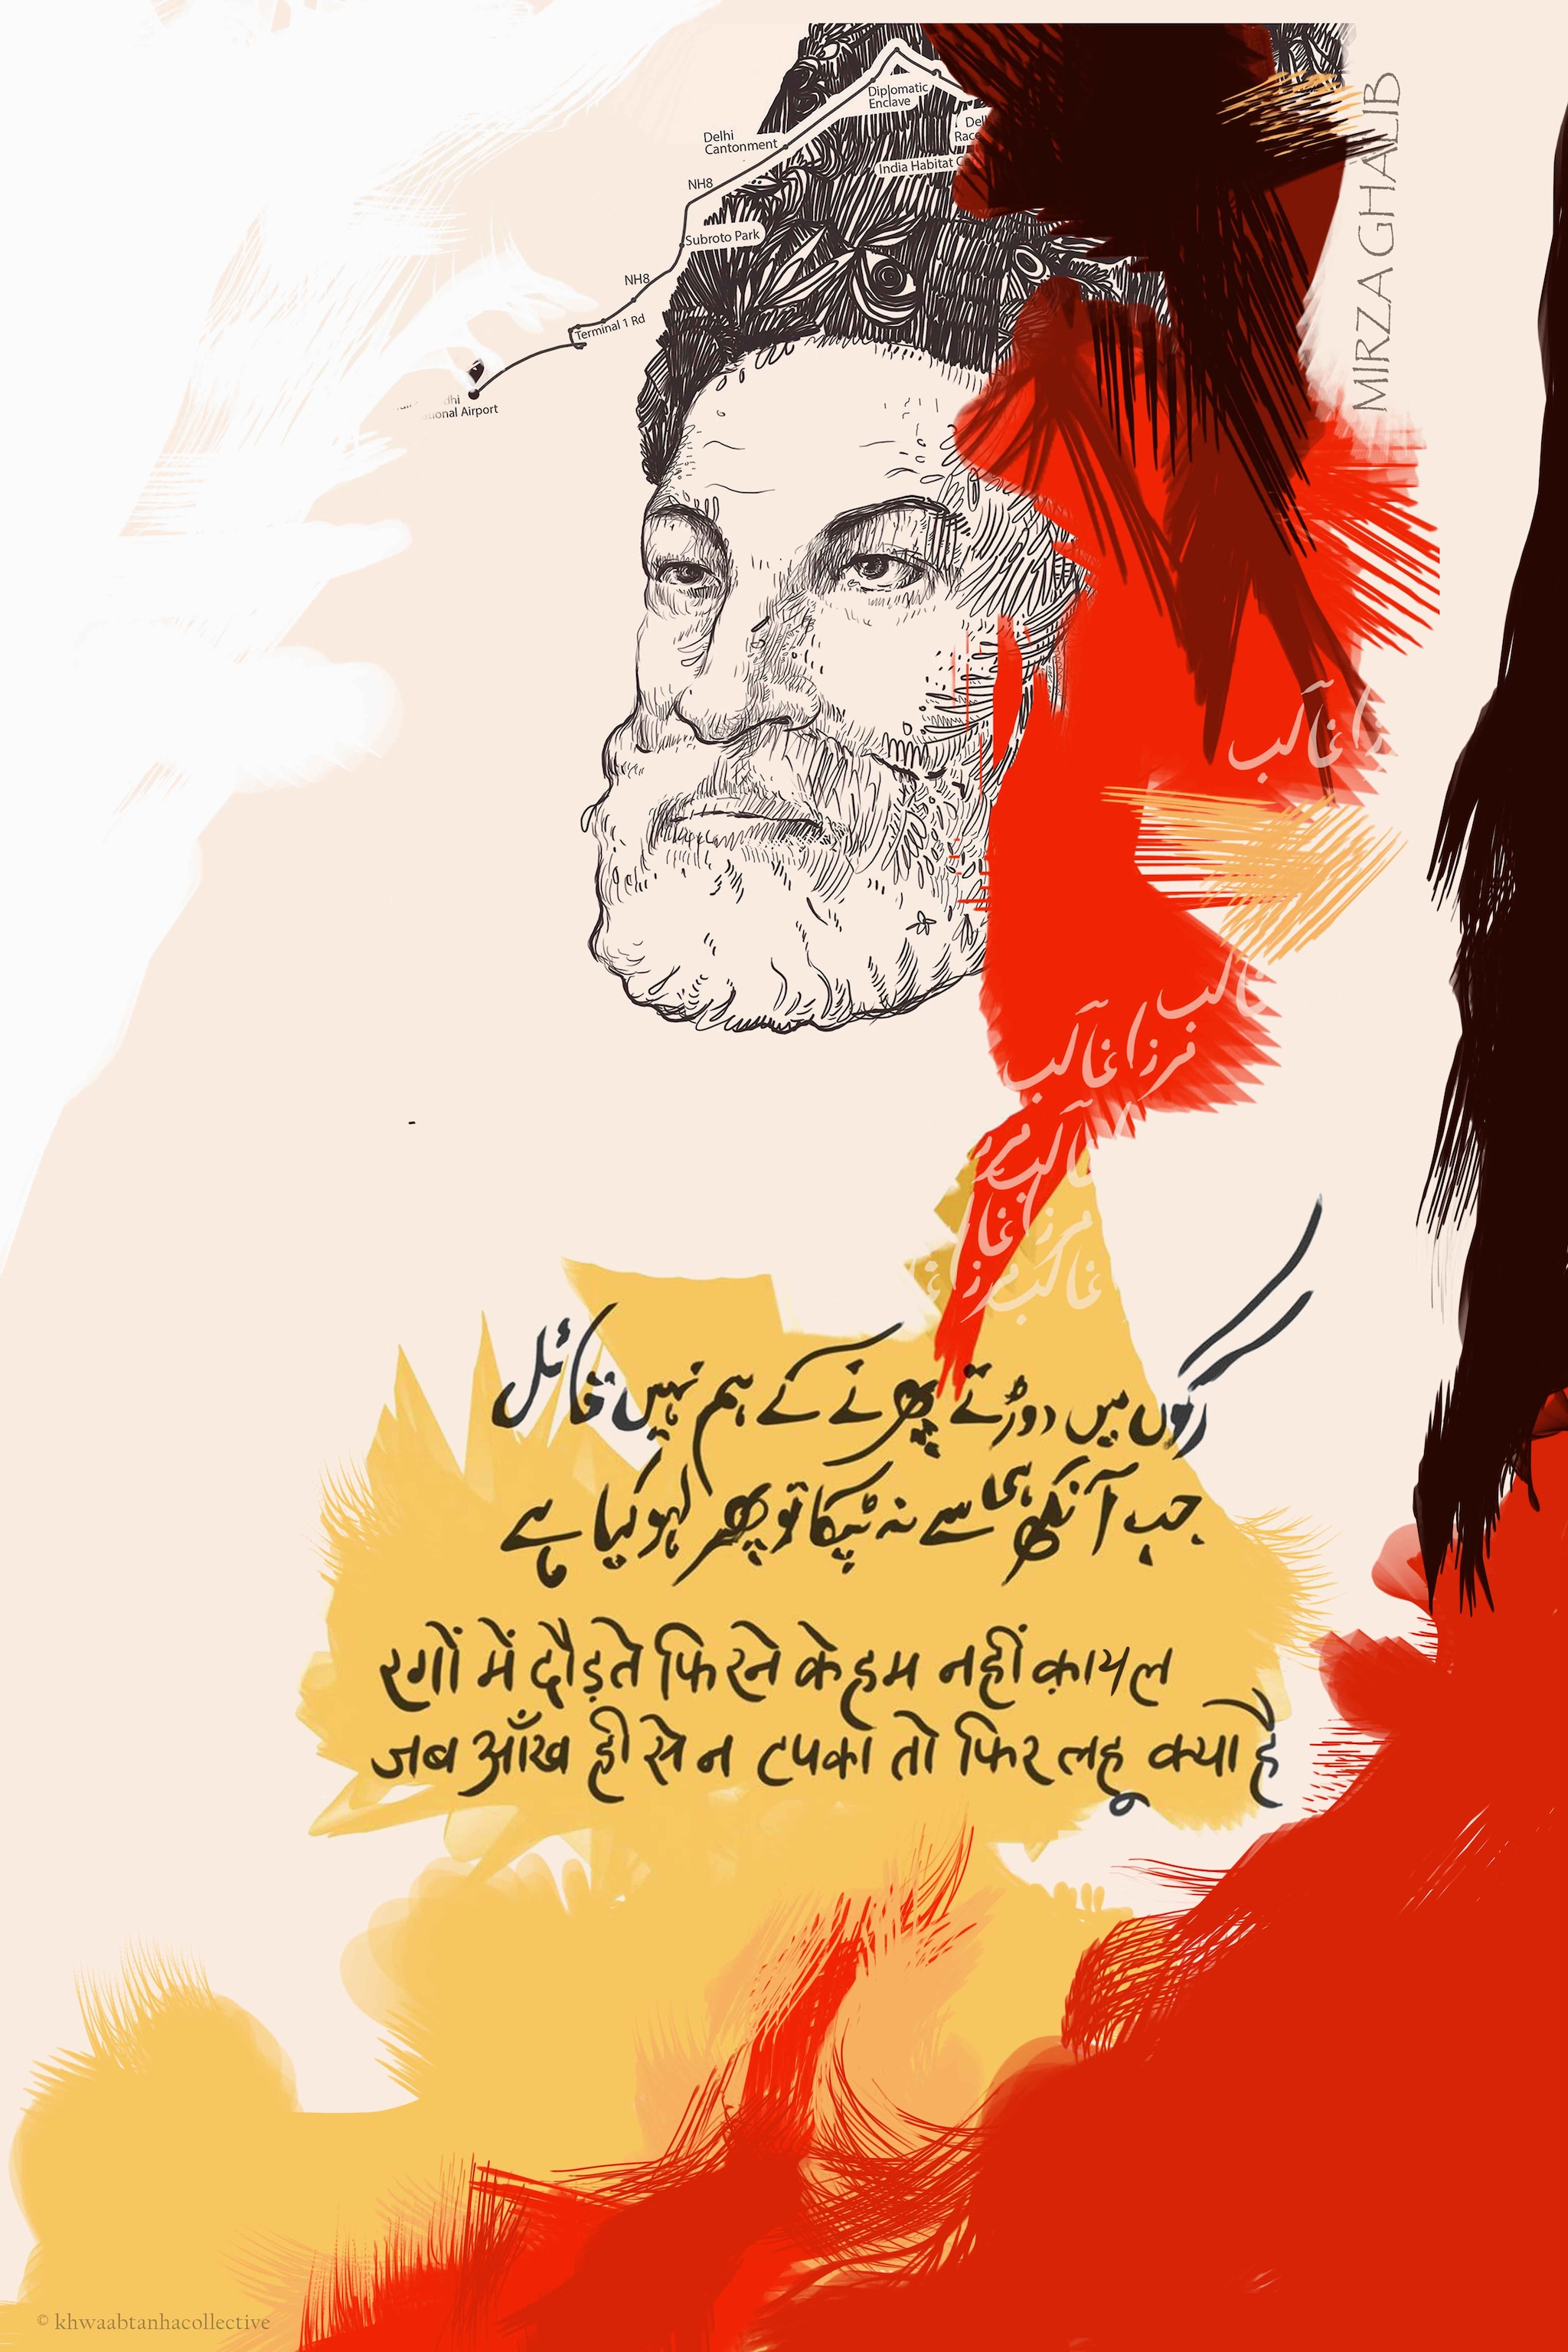 Diplomatic
Enclave
Delhi
Cantonment
India Habitat
NH8
Subroto Park
NH8
Terminal 1 Rd
Airport
MIRZA GHALIB
غالب
غالب
مرزا غالب
مرزا غا
غالب مرزا غا
رگوں میں دوڑتے پھرنے کے ہم نہیں قائل
جب آنکھ ہی سے نہ ٹپکا تو پھر لہو کیا ہے
रगों में दौड़ते फिरने के हम नहीं क़ायल
जब आँख ही से न टपका तो फिर लहू क्या है
© khwaabtanhacollective